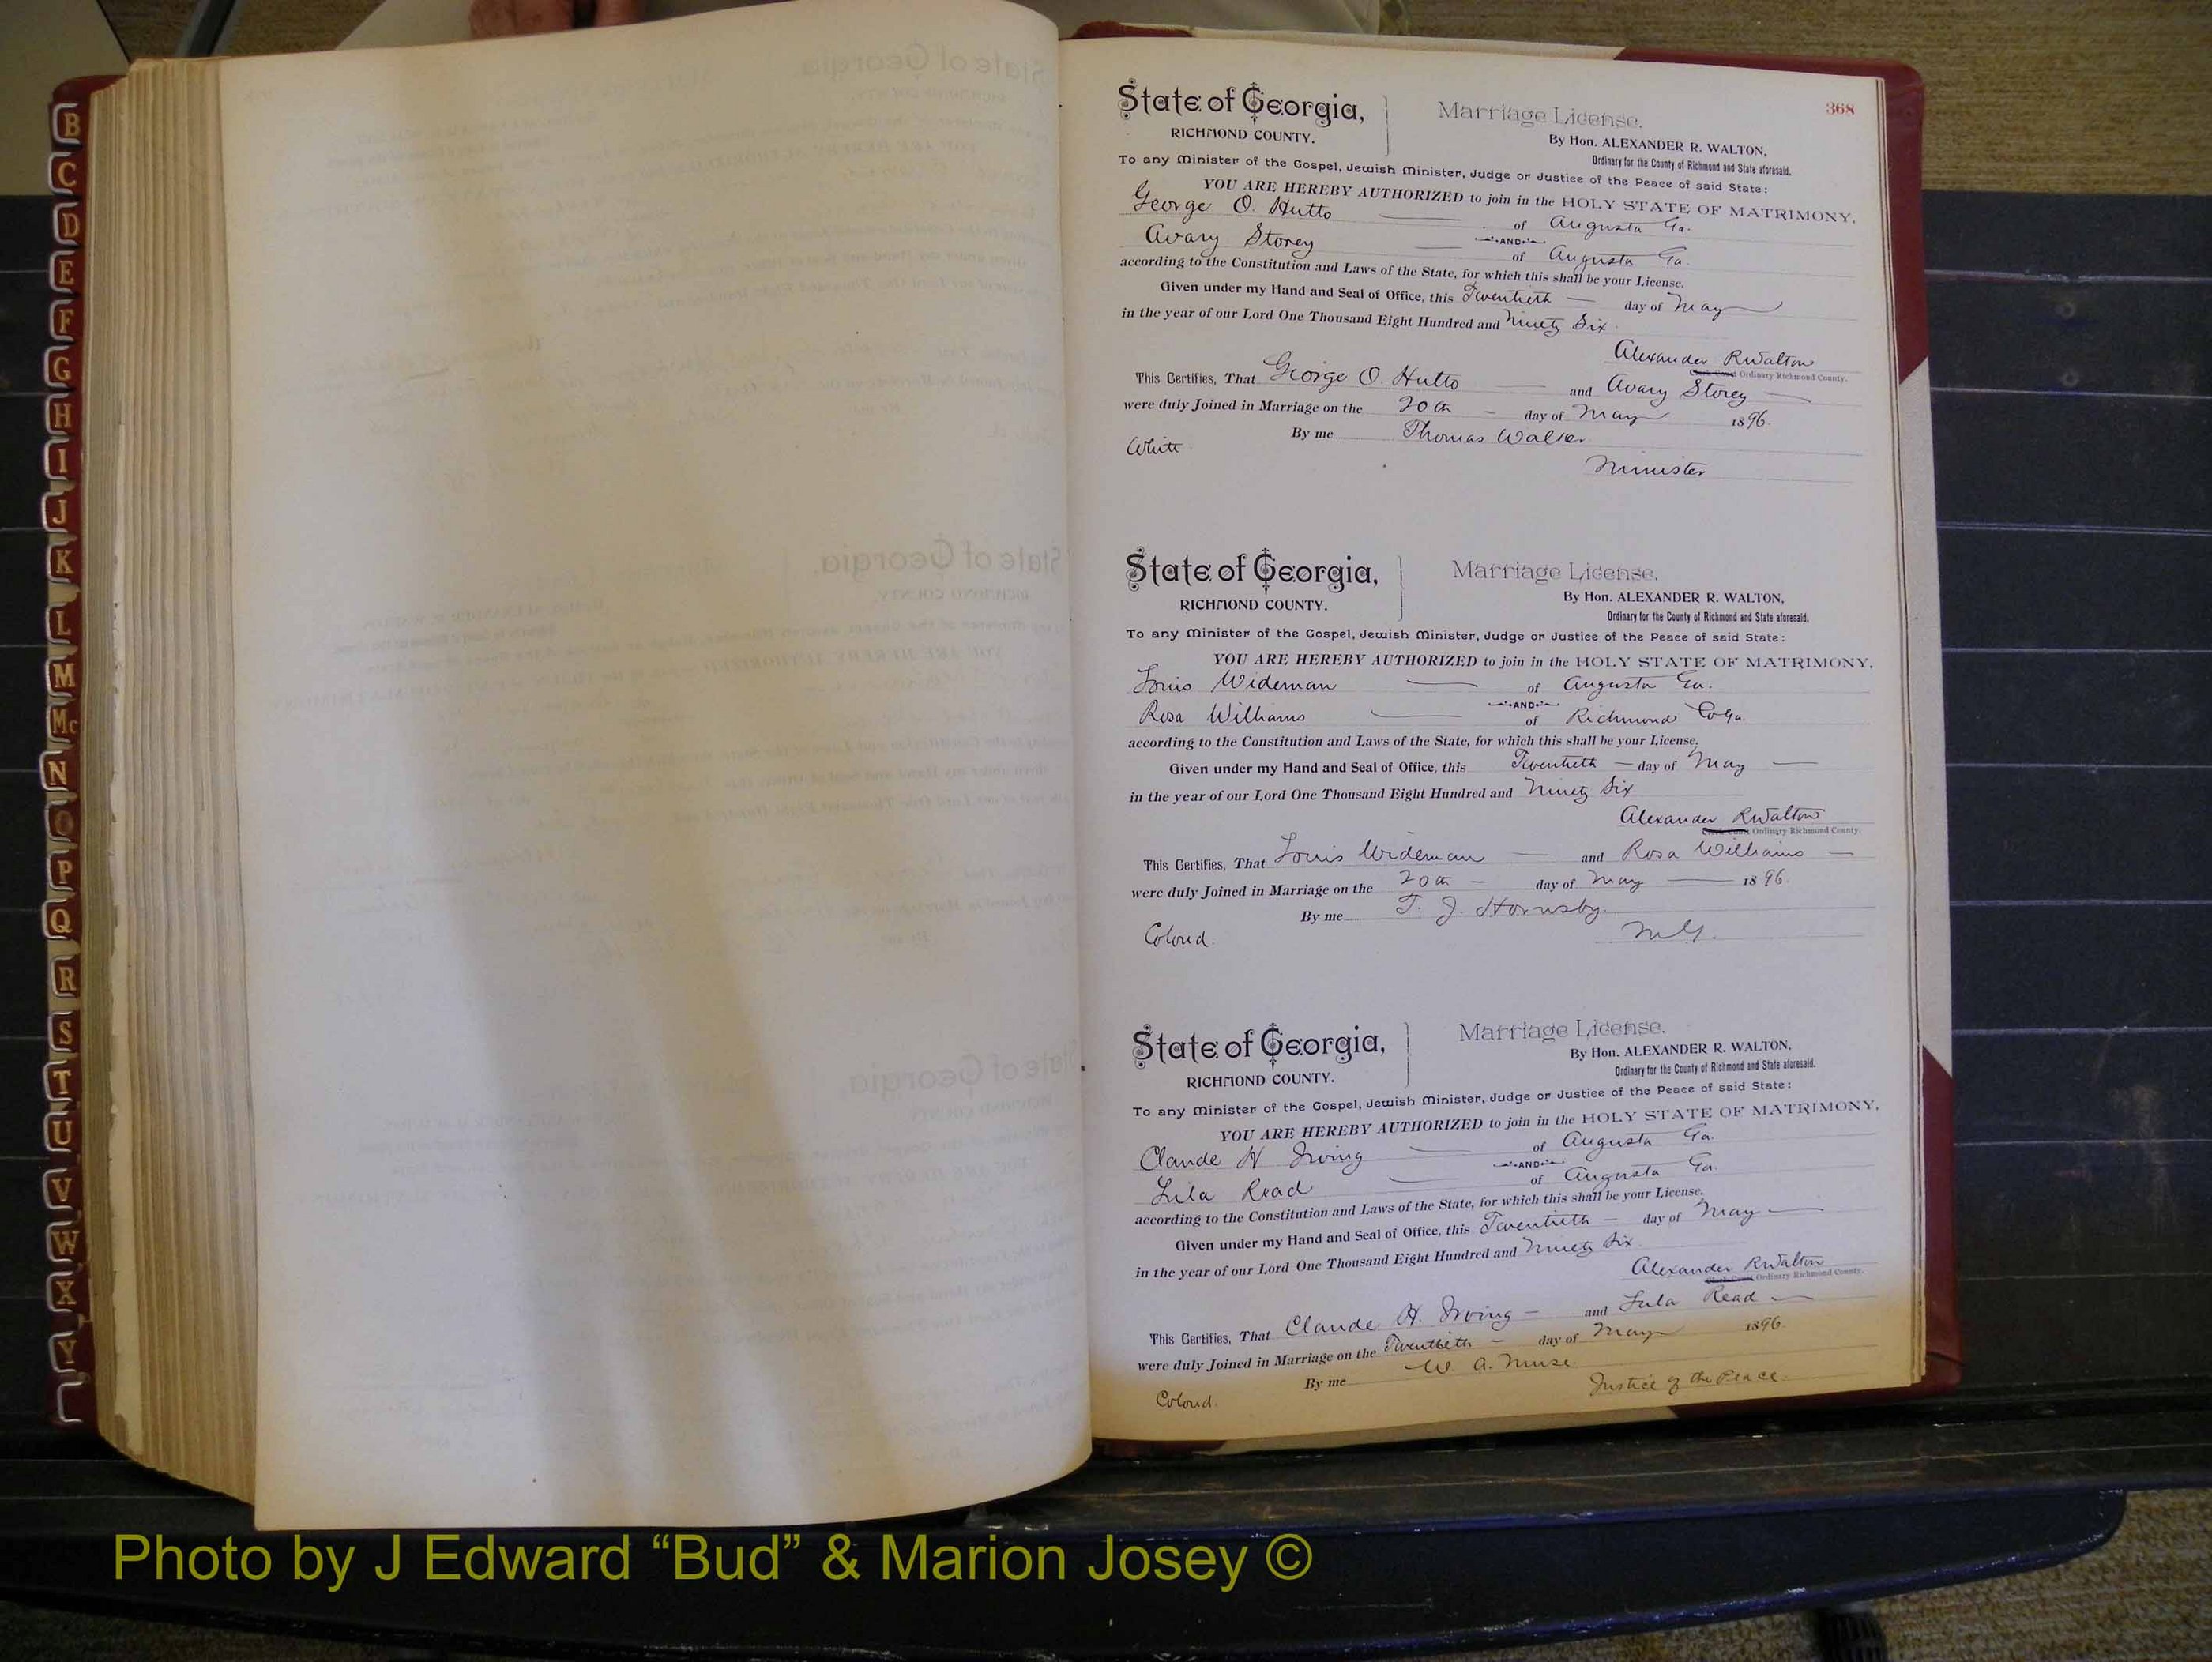 B
C
D
E
F
G
H
I
J
K
L
M
Mc
N
O
P
Q
R
S
T
U
V
W
X
Y
368
State of Georgia,
RICHMOND COUNTY.
Marriage License.
By Hon. ALEXANDER R. WALTON,
Ordinary for the County of Richmond and State aforesaid.
To any Minister of the Gospel, Jewish Minister, Judge or Justice of the Peace of said State:
YOU ARE HEREBY AUTHORIZED to join in the HOLY STATE OF MATRIMONY,
George O. Hutto of Augusta Ga.
AND
Avary Storey of Augusta Ga.
according to the Constitution and Laws of the State, for which this shall be your License.
Given under my Hand and Seal of Office, this Twentieth day of May
in the year of our Lord One Thousand Eight Hundred and Ninety Six.
Alexander R Walton
Ordinary Richmond County.
This Certifies, That George O. Hutto and Avary Storey
were duly Joined in Marriage on the 20th day of May 1896.
By me Thomas Walker
White
Minister
State of Georgia,
RICHMOND COUNTY.
Marriage License.
By Hon. ALEXANDER R. WALTON,
Ordinary for the County of Richmond and State aforesaid.
To any Minister of the Gospel, Jewish Minister, Judge or Justice of the Peace of said State:
YOU ARE HEREBY AUTHORIZED to join in the HOLY STATE OF MATRIMONY,
Louis Wideman of Augusta Ga.
AND
Rosa Williams of Richmond Co Ga.
according to the Constitution and Laws of the State, for which this shall be your License.
Given under my Hand and Seal of Office, this Twentieth day of May
in the year of our Lord One Thousand Eight Hundred and Ninety Six
Alexander R Walton
Ordinary Richmond County.
This Certifies, That Louis Wideman and Rosa Williams
were duly Joined in Marriage on the 20th day of May 1896.
By me T. J. Hornsby.
Colord.
M.G.
State of Georgia,
RICHMOND COUNTY.
Marriage License.
By Hon. ALEXANDER R. WALTON,
Ordinary for the County of Richmond and State aforesaid.
To any Minister of the Gospel, Jewish Minister, Judge or Justice of the Peace of said State:
YOU ARE HEREBY AUTHORIZED to join in the HOLY STATE OF MATRIMONY,
Claude H Irving of Augusta Ga.
AND
Lula Read of Augusta Ga.
according to the Constitution and Laws of the State, for which this shall be your License.
Given under my Hand and Seal of Office, this Twentieth day of May
in the year of our Lord One Thousand Eight Hundred and Ninety Six.
Alexander R Walton
Ordinary Richmond County.
This Certifies, That Claude H. Irving and Lula Read
were duly Joined in Marriage on the Twentieth day of May 1896.
By me W. A. Muse.
Colord.
Justice of the Peace.
Photo by J Edward “Bud” & Marion Josey ©